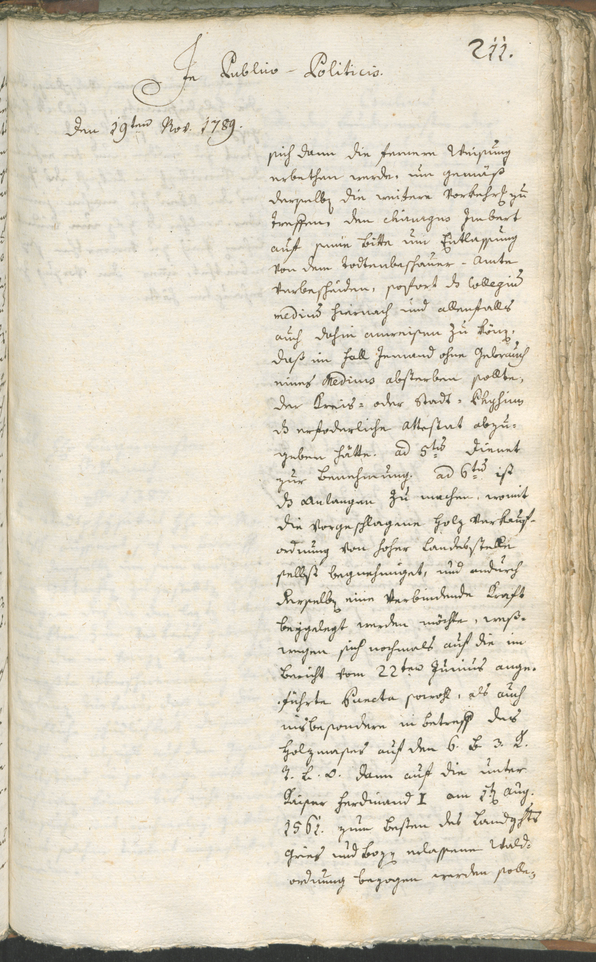 211.
In Publico-Politicis.
Den 19ten Nov. 1789.
sich dann die fernere Weisung
erbethen werde, um gemäß
derselben die weitere Vorkehrg zu
treffen, den chirurgus Imbert
auf seine Bitte um Entlassung
von dem Todtenbeschauer-Amte
verbescheiden, sofort ds Collegium
medium hiernach und allenfalls
auch dahin anweisen zu könn,
daß im Fall Jemand ohne Gebrauch
eines Medicus absterben sollte,
der Kreis- oder Stadt-Phisicus
ds erforderliche Attestat abzu-
geben hätte. ad 5tus dienet
zur Benehmung. ad 6tus ist
ds Anlangen zu machen, womit
die vorgeschlagene Holz Verkauf-
ordnung von hoher Landesstelle
selbst begnehmiget, und andurch
derselben eine verbindende Kraft
beygelegt werden möchte, weß-
wegen sich nochmals auf die im
Bericht vom 22ten Junius ange-
führte Puncta sowohl, als auch
insbesondere in betreff des
Holzmaßes auf den 6. B. 3. T.
T. L. O. dann auf die unter
Kaiser Ferdinand I am Aug.
1561. zum Besten des Landgchts
Gries und Bozen erlassene Wald-
ordnung bezogen werden solle,